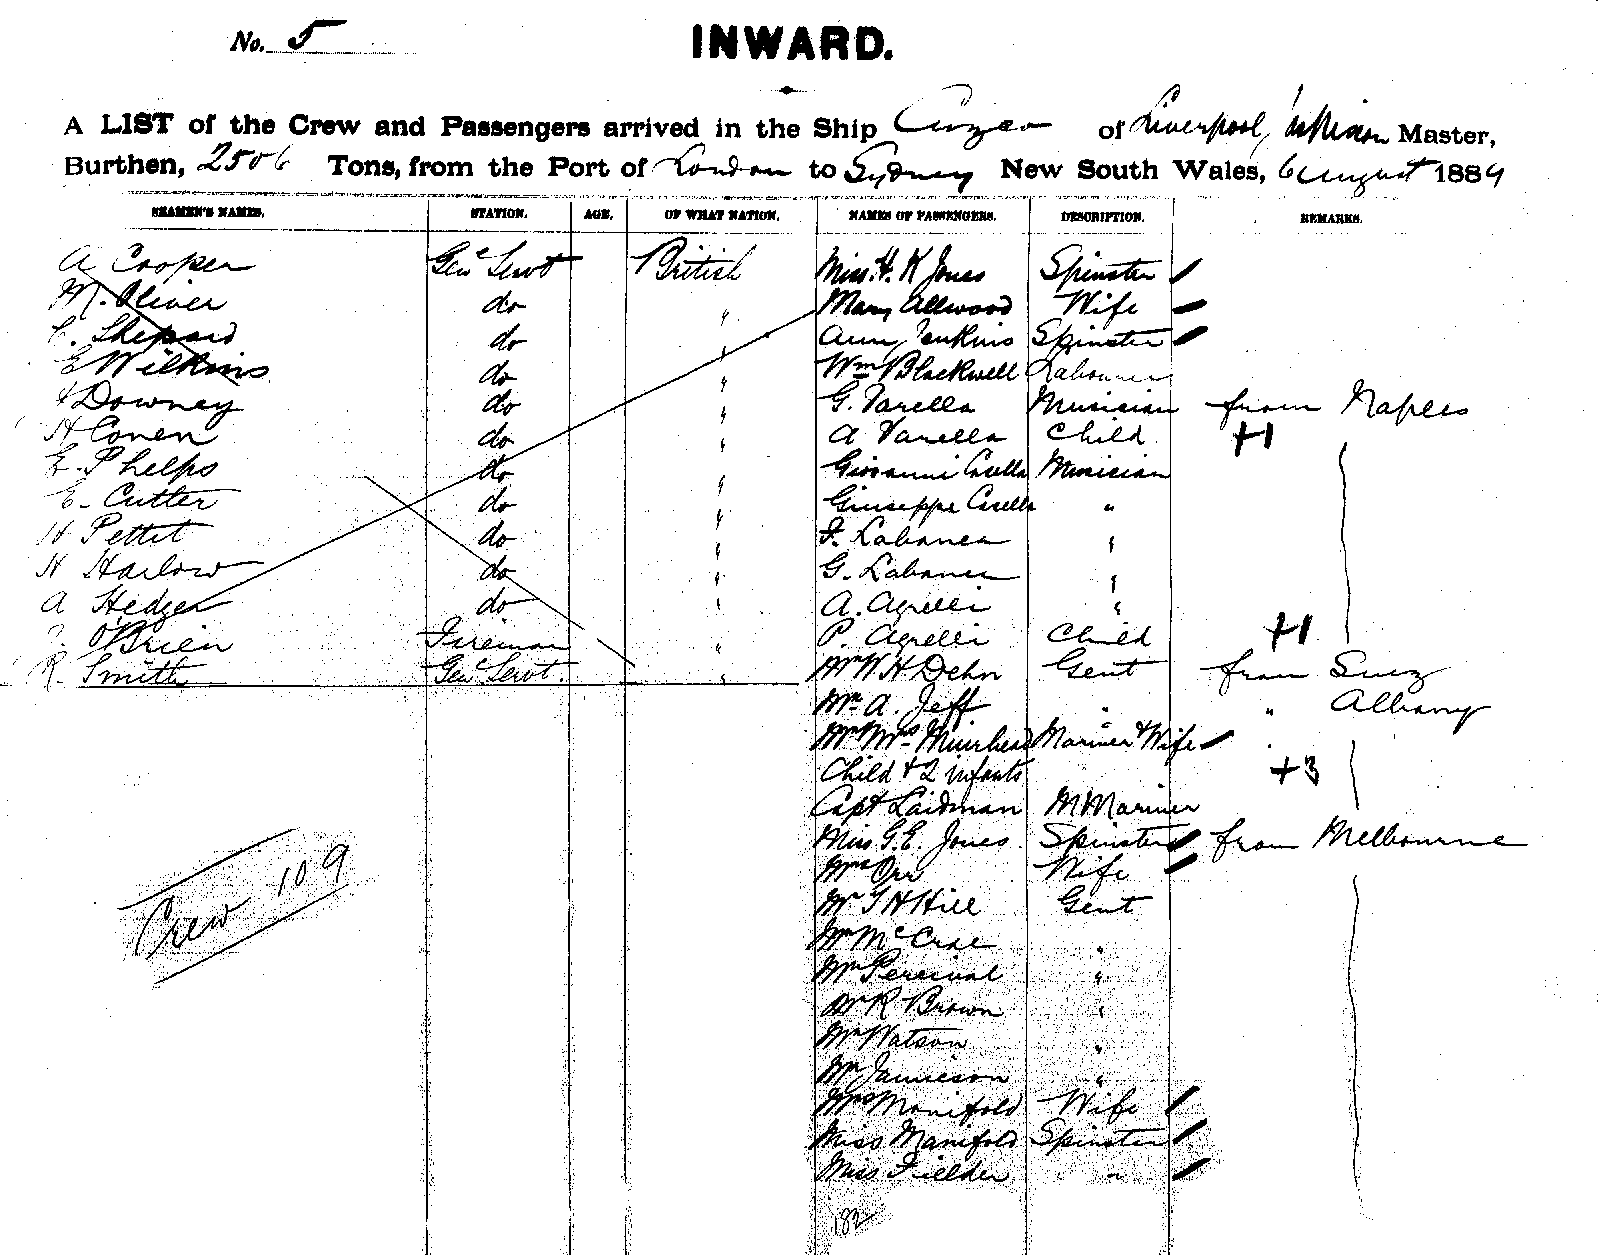 No. 5
INWARD.
A LIST of the Crew and Passengers arrived in the Ship Cuzco of Liverpool, Master,
Burthen, 2506 Tons, from the Port of London to Sydney New South Wales, 6 August 1884
SEAMEN'S NAMES. STATION. AGE. OF WHAT NATION. NAMES OF PASSENGERS. DESCRIPTION. REMARKS.
A Cooper Genl Servt British Miss H. K Jones Spinster
M. Oliver do " Mary Allwood Wife
C. Shepard do " Ann Jenkins Spinster
E Wilkins do " Wm Blackwell Labourer
Downey do " G. Varella Musician from Naples
H Conen do " A Varella Child +1
E. Phelps do " Giovanni Casella Musician
E. Cutter do " Giuseppe Casella "
H Pettit do " F. Labanca "
H Harlow do " G. Labanca "
A Hedger do " A. Agrelli "
O'Brien Fireman " P. Agrelli Child +1
R. Smith Genl Servt. " Mr W H Dehn Gent from Suez
Mr A. Jeff " " Albany
Mr Mrs Muirhead Mariner & Wife "
Child & 2 infants +3
Capt Laidman M Mariner
Miss G. E. Jones Spinster from Melbourne
Mrs Orr Wife
Mr T H Hill Gent
Mr McCrae "
Mr Percival "
Mr R Brown "
Mr Watson "
Mr Jamieson "
Mrs Manifold Wife
Miss Manifold Spinster
Miss Fielder "
Crew 109
182